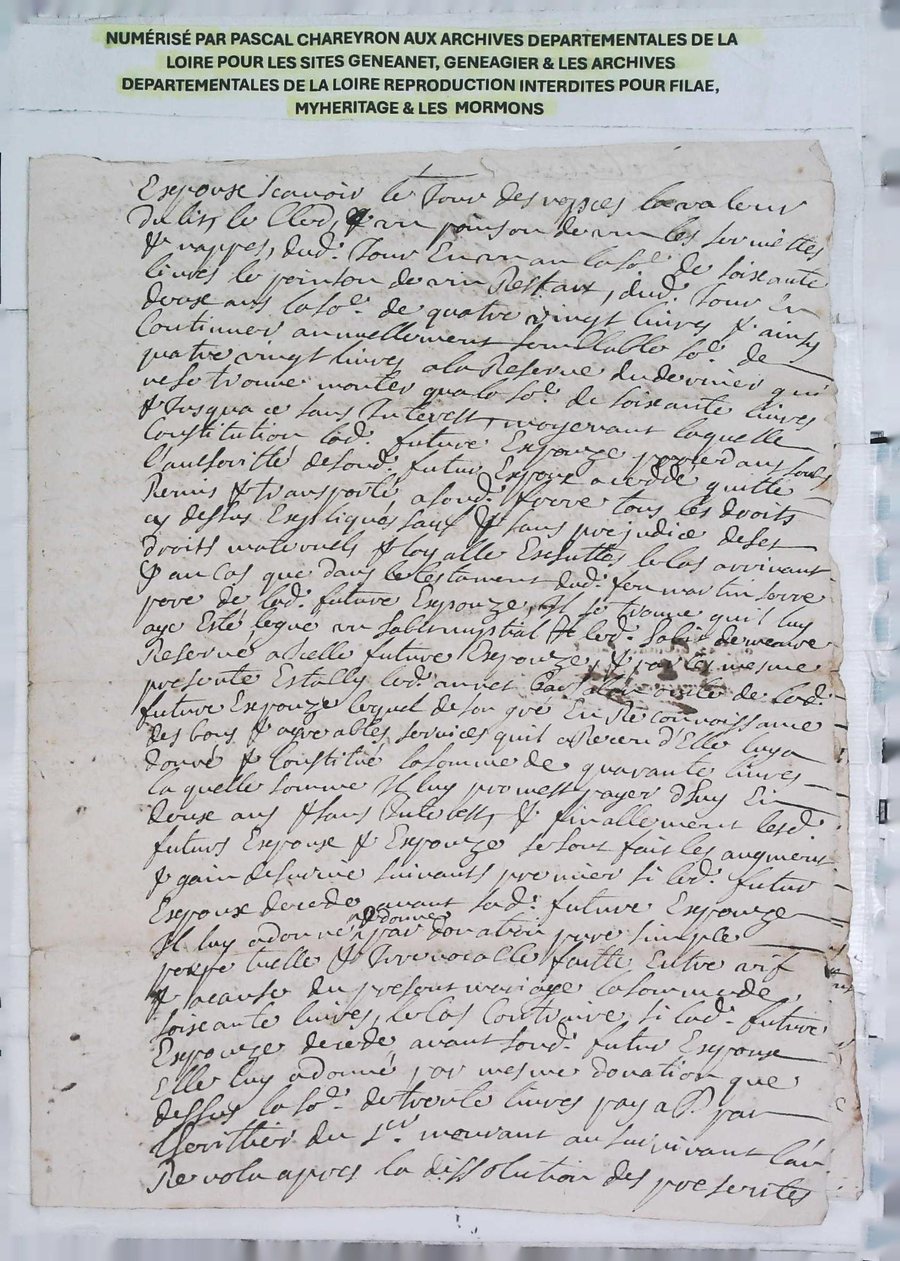 NUMÉRISÉ PAR PASCAL CHAREYRON AUX ARCHIVES DEPARTEMENTALES DE LA
LOIRE POUR LES SITES GENEANET, GENEAGIER & LES ARCHIVES
DEPARTEMENTALES DE LA LOIRE REPRODUCTION INTERDITES POUR FILAE,
MYHERITAGE & LES MORMONS
Espouse scavoir le Jour des nopces la valeur
du lis, le bled, & un poinson de vin les serviettes
& nappes, dud. Jour En un an la so. de soisante
livres le poinson de vin Restant, dud. Jour En
deux ans la so. de quatre vingt livres & ainsy
Continuer annuellement semblable so. de
quatre vingt livres a la Reserve du dernier qui
ne se trouve monter qua la so. de soisante livres
& Jusqua ce sans Interest, moyenant laquelle
Constitution lad. future Espouze procedant soubs
l'authorité de sond. futur Espoux a cedé quitté
Remis & transporté a sond. frere tous les droits
cy dessus Expliqués sauf & sans prejudice de ses
droits maternels & loyalle Escheuttes le cas arrivant
& au Cas que dans le testament dud. feu martin
pere de lad. future Espouze, Il se trouve qu'il luy
aye Esté legué un demeure
Reservé a Icelle future Espouze, & par les mesme
presente Estably led. de lad.
future Espouze lequel de son gré En Reconnoissance
des bons & agreables services quil a Receu d'Elle luy a
donné & Constitué la somme de quarante livres
la quelle somme Il luy promest payer d'huy En
deux ans & sans Interest, & finallement lesd.
futurs Espouse & Espouze se sont fait les augment
& gain de survie suivants premier si led. futur
Espoux decede avant lad. future Espouze
Il luy a donné & donne par donation pure simple
perpetuelle & Irrevocable faitte Entre vif
& a cause du present mariage la somme de
soisante livres, le cas Contraire si lad. future
Espouze decede avant sond. futur Espouse
Elle luy a donné par mesme donation que
dessus la so. de trente livres payab. par
l'heritier du 1er mourant au survivant l'an
Revolu apres la dissolution des presentes